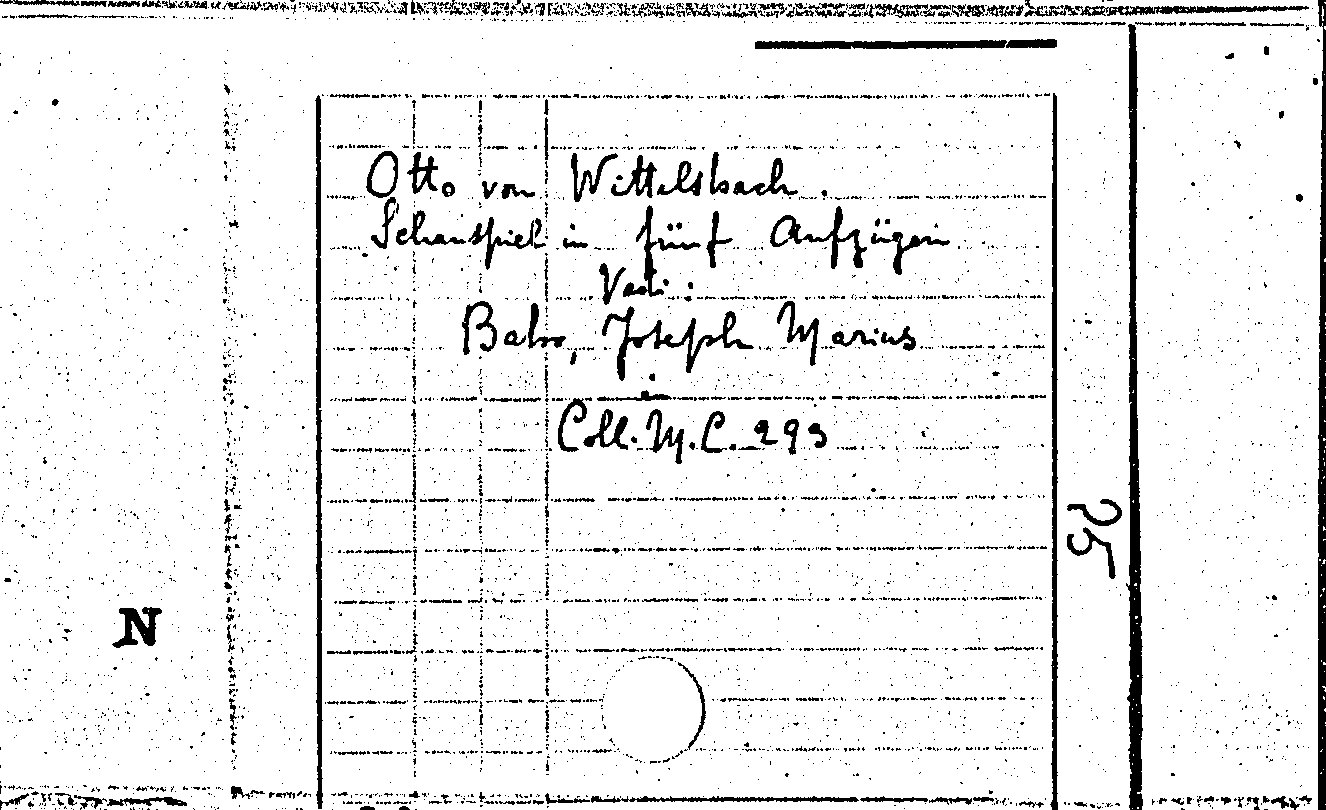 Otto von Wittelsbach.
Schauspiel in fünf Aufzügen
Babo, Joseph Marius
in
Coll. M. C. 293
25
N